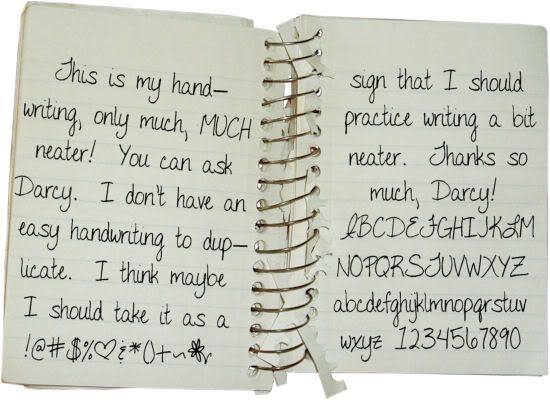 This is my hand-
writing, only much, MUCH
neater! You can ask
Darcy. I don't have an
easy handwriting to dup-
licate. I think maybe
I should take it as a
!@#$%♡&*()+~❀r
sign that I should
practice writing a bit
neater. Thanks so
much, Darcy!
ABCDEFGHIJKLM
NOPQRSTUVWXYZ
abcdefghijklmnopqrstuv
wxyz 1234567890